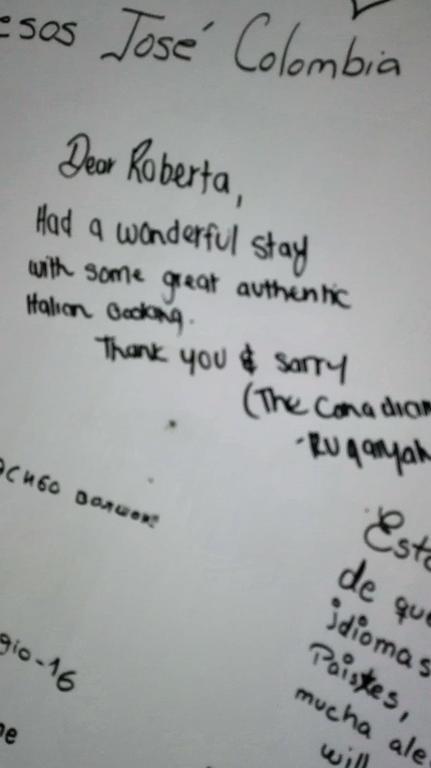 esos José Colombia
Dear Roberta,
Had a wonderful stay
with some great authentic
Italian Cooking.
Thank you & sorry
(The Canadian
-Ruqayyah
большое
gio-16
Esto
de que
idiomas
mucha ale
will